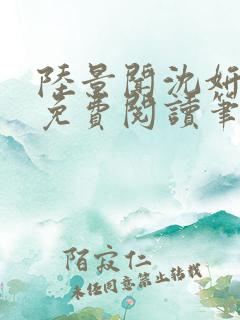 陸景聞沈妍
免費閱讀筆
陌寂仁
未任同意禁止转载